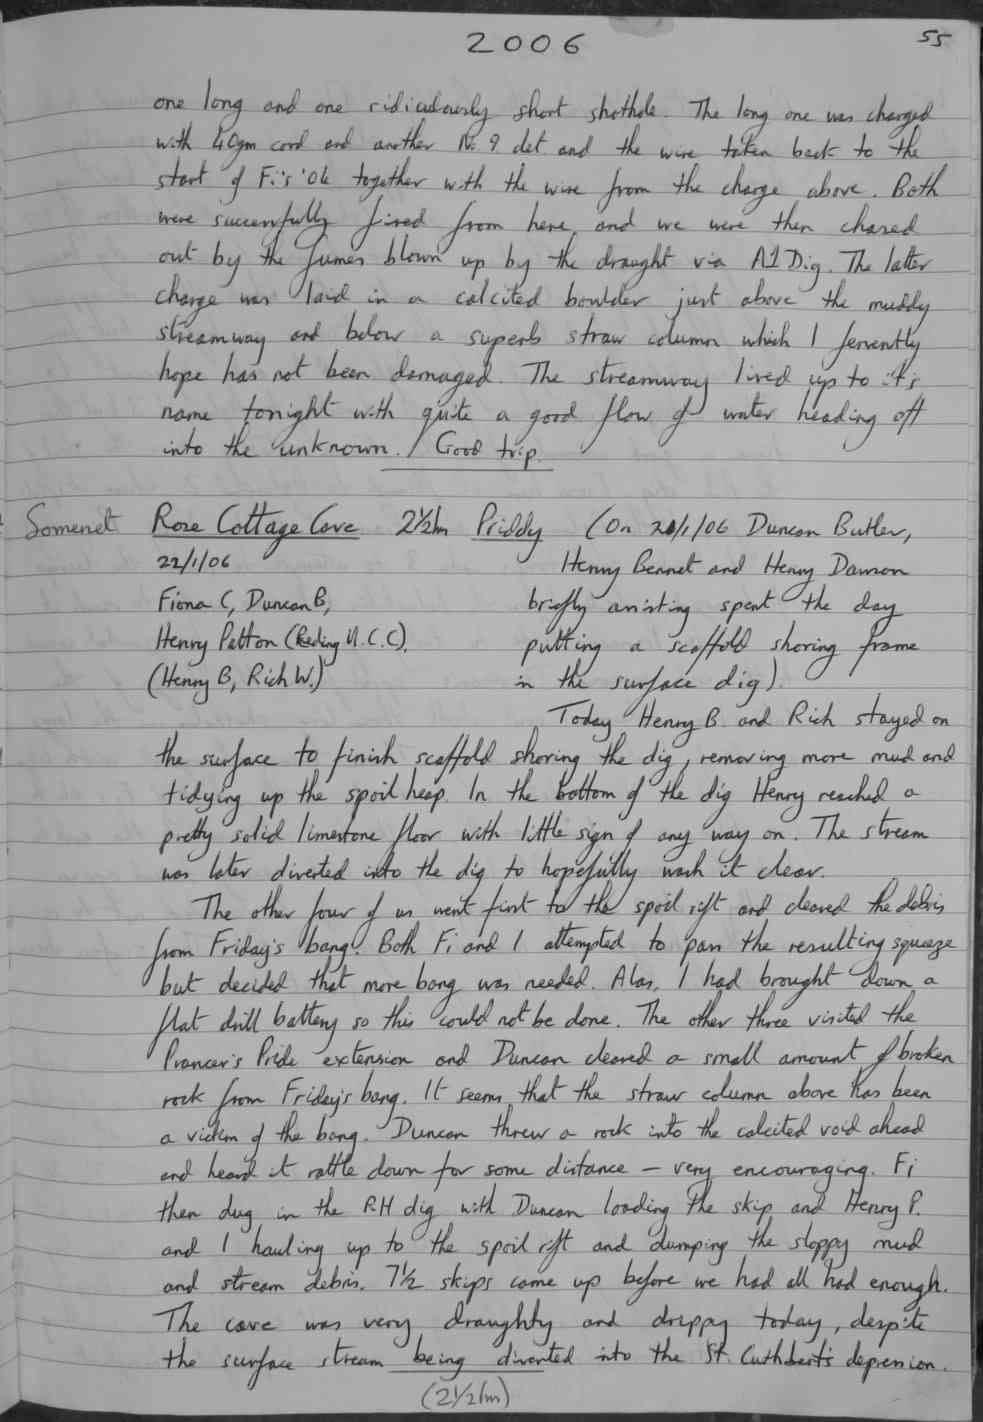 2006
55
one long and one ridiculously short shothole. The long one was charged
with 40gm cord and another No. 9 det and the wire taken back to the
start of Fi's '06 together with the wire from the charge above. Both
were successfully fired from here, and we were then chased
out by the fumes blown up by the draught via A1 Dig. The latter
charge was laid in a calcited boulder just above the muddy
streamway and below a superb straw column which I fervently
hope has not been damaged. The streamway lived up to it's
name tonight with quite a good flow of water heading off
into the unknown. / Good trip.
Somerset Rose Cottage Cave 2½hrs Priddy (On 21/1/06 Duncan Butler,
22/1/06 Henry Bennet and Henry Dawson
Fiona C, Duncan B, briefly assisting spent the day
Henry Patton (Reding U.C.C), putting a scaffold shoring frame
(Henry B, Rich W.) in the surface dig).
Today Henry B and Rich stayed on
the surface to finish scaffold shoring the dig, removing more mud and
tidying up the spoil heap. In the bottom of the dig Henry reached a
pretty solid limestone floor with little sign of any way on. The stream
was later diverted into the dig to hopefully wash it clear.
The other four of us went first to the spoil rift and cleared the debris
from Friday's bang. Both Fi and I attempted to pass the resulting squeeze
but decided that more bang was needed. Alas, I had brought down a
flat drill battery so this could not be done. The other three visited the
Prancer's Pride extension and Duncan cleared a small amount of broken
rock from Friday's bang. It seems that the straw column above has been
a victim of the bang. Duncan threw a rock into the calcited void ahead
and heard it rattle down for some distance – very encouraging. Fi
then dug in the RH dig with Duncan loading the skip and Henry P.
and I hauling up to the spoil rift and dumping the sloppy mud
and stream debris. 7½ skips came up before we had all had enough.
The cave was very draughty and drippy today, despite
the surface stream being diverted into the St. Cuthbert's depression.
(2½hrs)